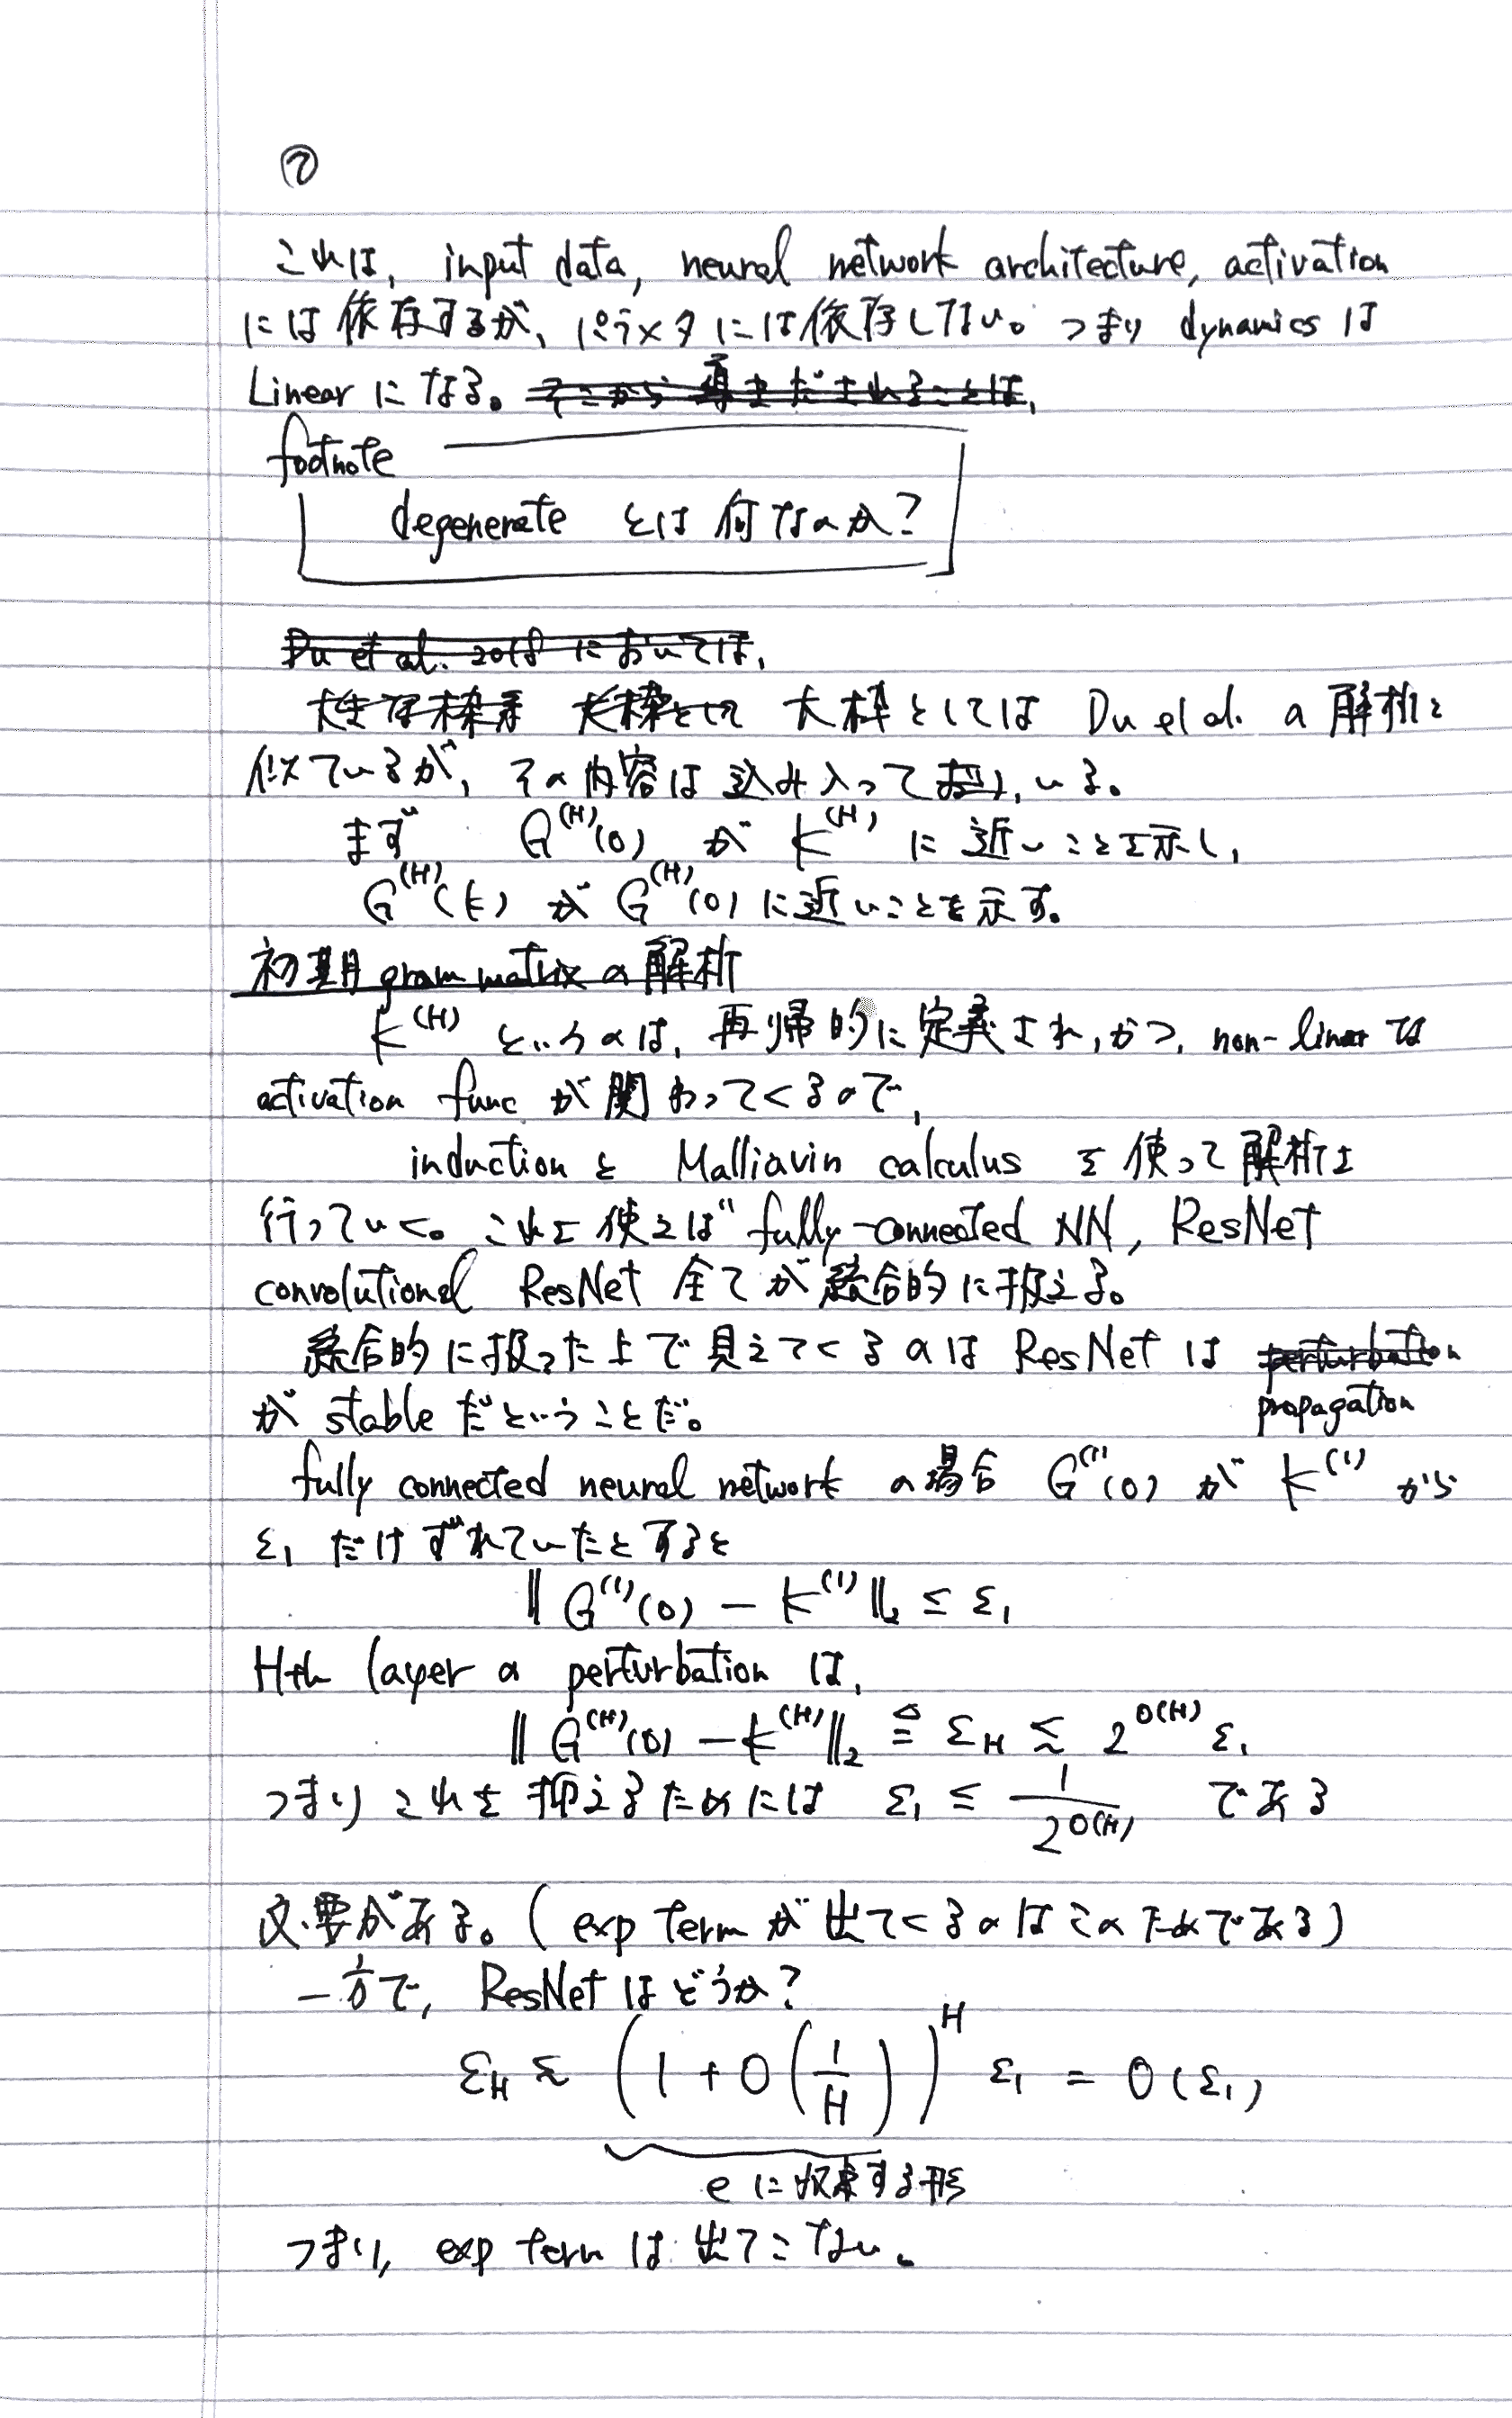 ⑦
これは, input data, neural network architecture, activation
には依存するが、パラメタには依存しない。つまり dynamics は
Linear になる。そこから導きだされることは,
footnote
degenerate とは何なのか?
Du et al. 2018 においては,
大枠としては Du et al. の解析と
似ているが, その内容は込み入って おり, いる。
まず G^(H)(0) が K^(H) に近いことを示し,
G^(H)(k) が G^(H)(0) に近いことを示す。
初期 gram matrix の解析
K^(H) というのは, 再帰的に定義され, かつ, non-linear な
activation func が関わってくるので,
induction と Malliavin calculus を使って解析は
行っていく。これを使えば fully-connected NN, ResNet
convolutional ResNet 全てが統合的に扱える。
統合的に扱った上で見えてくるのは ResNet は perturbation
が stable だということだ。 propagation
fully connected neural network の場合 G^(1)(0) が K^(1) から
ε₁ だけずれていたとすると
‖ G^(1)(0) − K^(1) ‖₂ ≤ ε₁
Hth layer の perturbation は,
‖ G^(H)(0) − K^(H) ‖₂ ≜ ε_H ≲ 2^O(H) ε₁
つまりこれを抑えるためには ε₁ ≤ 1/2^O(H) である
必要がある。( exp term が出てくるのはこのためである)
一方で, ResNet はどうか?
ε_H ≲ (1 + O(1/H))^H ε₁ = O(ε₁)
e に収束する形
つまり, exp term は出てこない。